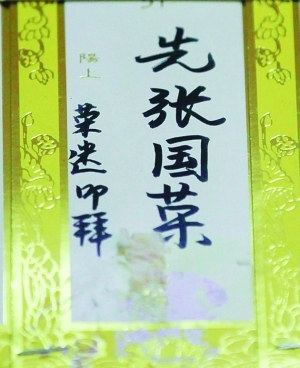 先张国荣
陽上
荣迷叩拜